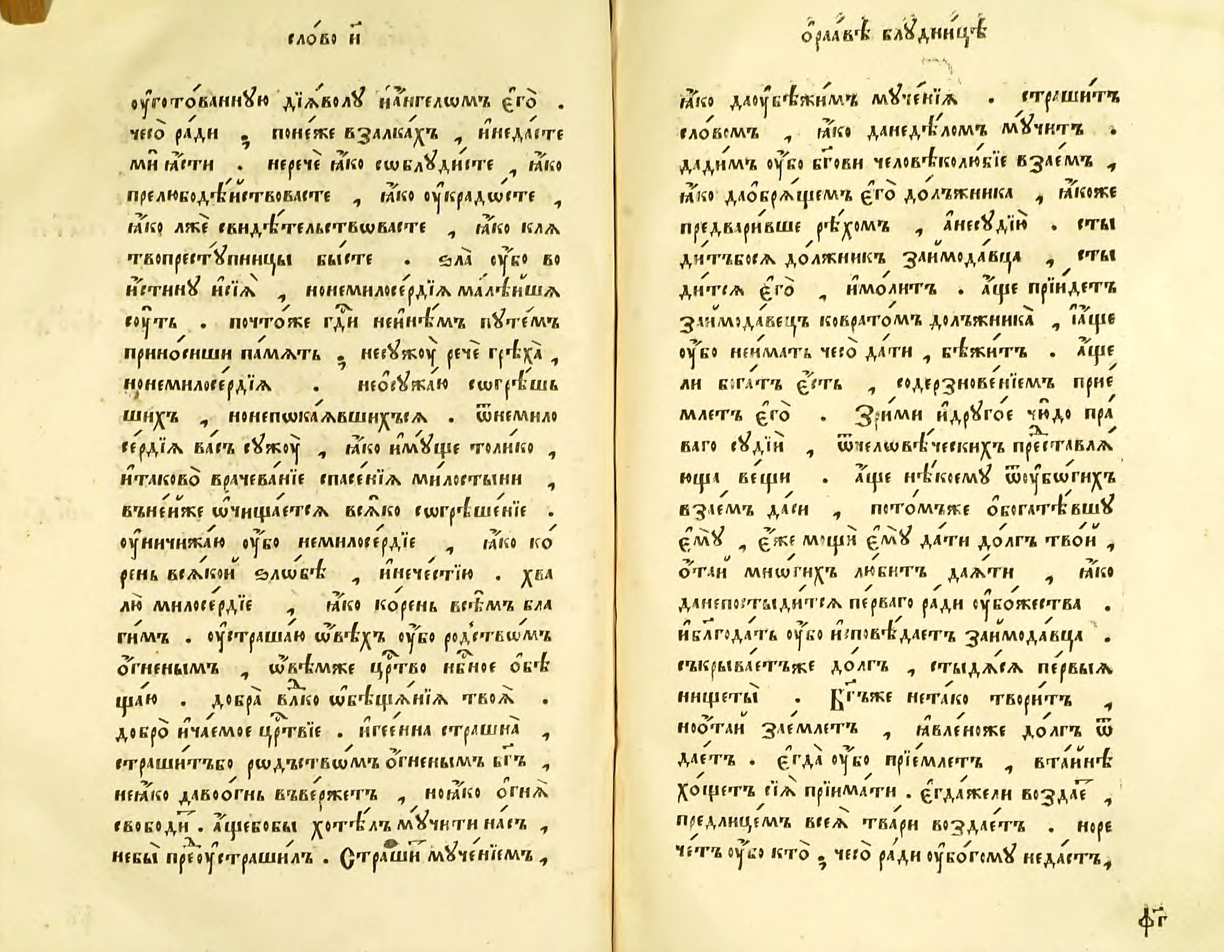 сло́во и҃
оу҆гото́ваннꙋю дїѧ́волꙋ и҆а҆́нгелѡмъ є҆го̀ .
чесо̀ ра́ди ; поне́же взалка́хъ , и҆неда́сте
мѝ ꙗ҆́сти . неречѐ ꙗ҆́ко соблꙋди́сте , ꙗ҆́ко
прелюбодѣ́йствовасте , ꙗ҆́ко оу҆кра́дѡсте ,
ꙗ҆́ко лжѐ свидѣ́тельствѡвасте , ꙗ҆́ко клѧ
твопрестꙋ́пницы бы́сте . ѕла̀ оу҆́бо во
и҆́стинꙋ и҆сїѧ̀ , нонемилосе́рдїѧ малѣ́йшѧ
соу́ть . почто́же гд҇и неи҆нѣ́мъ пꙋте́мъ
прино́сиши па́мѧть ; несꙋжоу̀ речѐ грѣха̀ ,
нонемилосе́рдїѧ . неѻсꙋжа́ю сѡгрѣ́шь
шихъ , нонепѡка́ѧвшихъсѧ . ѿнемило
се́рдїѧ ва́съ сꙋжоу̀ , ꙗ҆́ко и҆мꙋ́ще толи́ко ,
и҆таково̀ врачева́нїе спасе́нїѧ ми́лостыни ,
въне́йже ѡ҆чища́етсѧ всѧ́ко сѡгрѣше́нїе .
оу҆ничижа́ю оу҆́бо немилосе́рдїе , ꙗ҆́ко ко́
рень всѧ́кой ѕло́бѣ , и҆нече́стїю . хва
лю̀ милосе́рдїе , ꙗ҆́ко ко́рень всѣ́мъ бла
ги́мъ . оу҆страша́ю ѡ҆вѣ́хъ оу҆́бо ро́дствѡмъ
ѻ҆́гненымъ , ѡ҆вѣ́мже цр҇тво нб҇ное ѻ҆бѣ
ща́ю . добра̀ влⷣко ѡ҆бѣща́нїѧ твоѧ̀ .
добро̀ и҆ча́емое цр҇твїе . и҆гее́нна страшна̀ ,
страши́тъбо рѡ́дъствѡмъ ѻ҆́гненымъ бг҃ъ ,
неꙗ҆́ко давоо҆́гнь въве́ржетъ , ноꙗ҆́ко ѻ҆гнѧ̀
свободи́т . а҆́щебобы хотѣ́лъ мꙋ́чити на́съ ,
небы̀ преⷣоу҆страши́лъ . Страши́т мꙋче́нїемъ ,
ѻ҆раа́вѣ блꙋдни́цѣ
ꙗ҆́ко даоу҆бѣжи́мъ мꙋче́нїѧ . страши́тъ
сло́вомъ , ꙗ҆́ко данедѣ́ломъ мꙋ́читъ .
дади́мъ оу҆́бо бг҃ови человѣколю́бїе взае́мъ ,
ꙗ҆́ко даѻбрѧ́щемъ є҆го̀ до́лъжника , ꙗ҆́коже
предвари́вше рѣ́хомъ , а҆несꙋдїю̀ . сты
ди́тъбосѧ должни́къ заимода́вца , сты
ди́тсѧ є҆го̀ , и҆мо́литъ . а҆́ще прїи́детъ
заимода́вецъ ковра́томъ до́лъжника̀ , і҆а҆́ще
оу҆́бо неи́мать чесо̀ да́ти , бѣжи́тъ . а҆́ще
ли бога́тъ є҆́сть , содерзнове́нїемъ прїе́
млетъ є҆го̀ . Зри́ми и҆дрꙋго́е чю́до пра́
ваго сꙋдїѝ , ѿчелѡвѣ́ческихъ преⷣставлѧ́
юща ве́щи . а҆́ще нѣ́коемꙋ ѿоу҆бо́гихъ
взае́мъ дасѝ , пото́мъже ѻ҆богатѣ́вшꙋ
є҆мꙋ̀ , є҆́же мо́щи є҆мꙋ̀ да́ти до́лгъ тво́й ,
ѻ҆та́й мно́гихъ лю́битъ даѧ́ти , ꙗ҆́ко
данепостыди́тсѧ пе́рваго ра́ди оу҆бо́жества .
и҆бл҃года́ть оу҆́бо и҆сповѣ́даетъ заимода́вца .
съкрыва́етъже до́лгъ , стыдѧ́сѧ пе́рвыѧ
нищеты̀ . Бг҃ъже нета́ко твори́тъ ,
ноо҆та́й зае́млетъ , ꙗ҆вле́ноже до́лгъ ѿ
дае́тъ . є҆гда̀ оу҆́бо прїе́млетъ , вта́йнѣ
хо́щетъ сїѧ̀ прїима́ти . є҆гда́жели воздае́т ,
предлице́мъ всеѧ̀ тва́ри воздае́тъ . норе
че́тъ оу҆́бо кто̀ ; чесо̀ ра́ди оу҆бо́гомꙋ неда́стъ,
фг҃